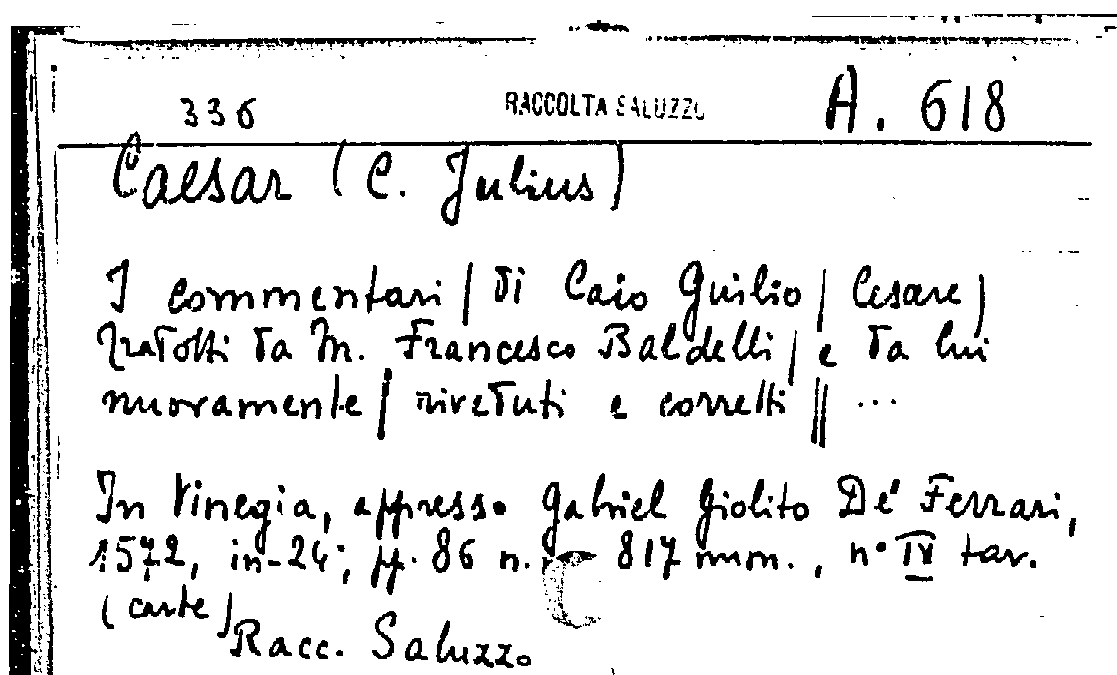 336 RACCOLTA SALUZZO A. 618
Caesar (C. Julius)
I commentari | di Caio Guilio | Cesare |
tradotti da M. Francesco Baldelli | e da lui
nuovamente | riveduti e corretti || ...
In Vinegia, appresso Gabriel Giolito De' Ferrari,
1572, in-24; pp. 86 n. 817 num., n° IV tav.
(carte)
Racc. Saluzzo